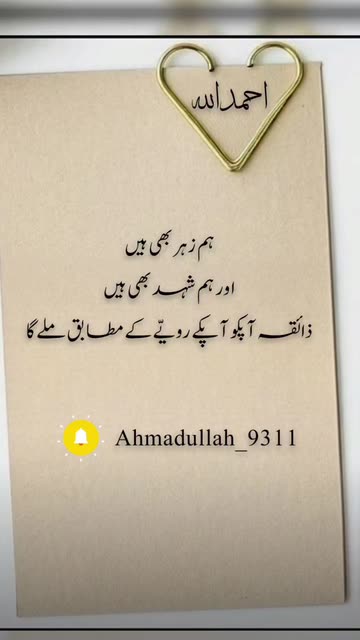 احمداللہ
ہم زہر بھی ہیں
اور ہم شہد بھی ہیں
ذائقہ آپکو آپکے رویّے کے مطابق ملے گا
Ahmadullah_9311